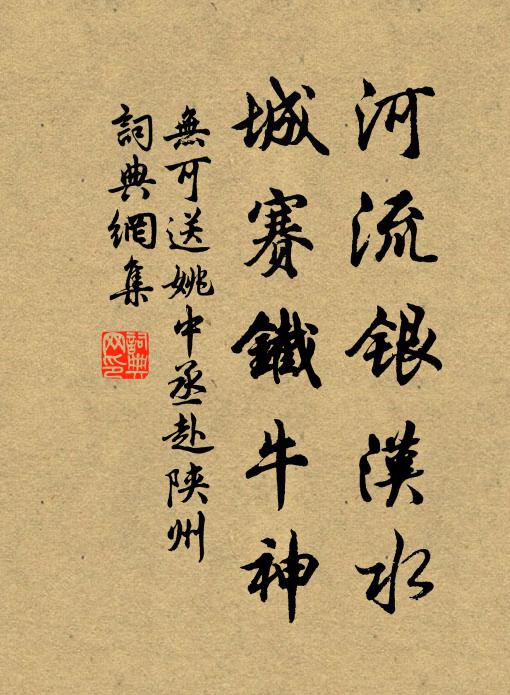 河流銀漢水
城賽鐵牛神
無可送姚中丞赴陝州
詞典網集
詞典网印